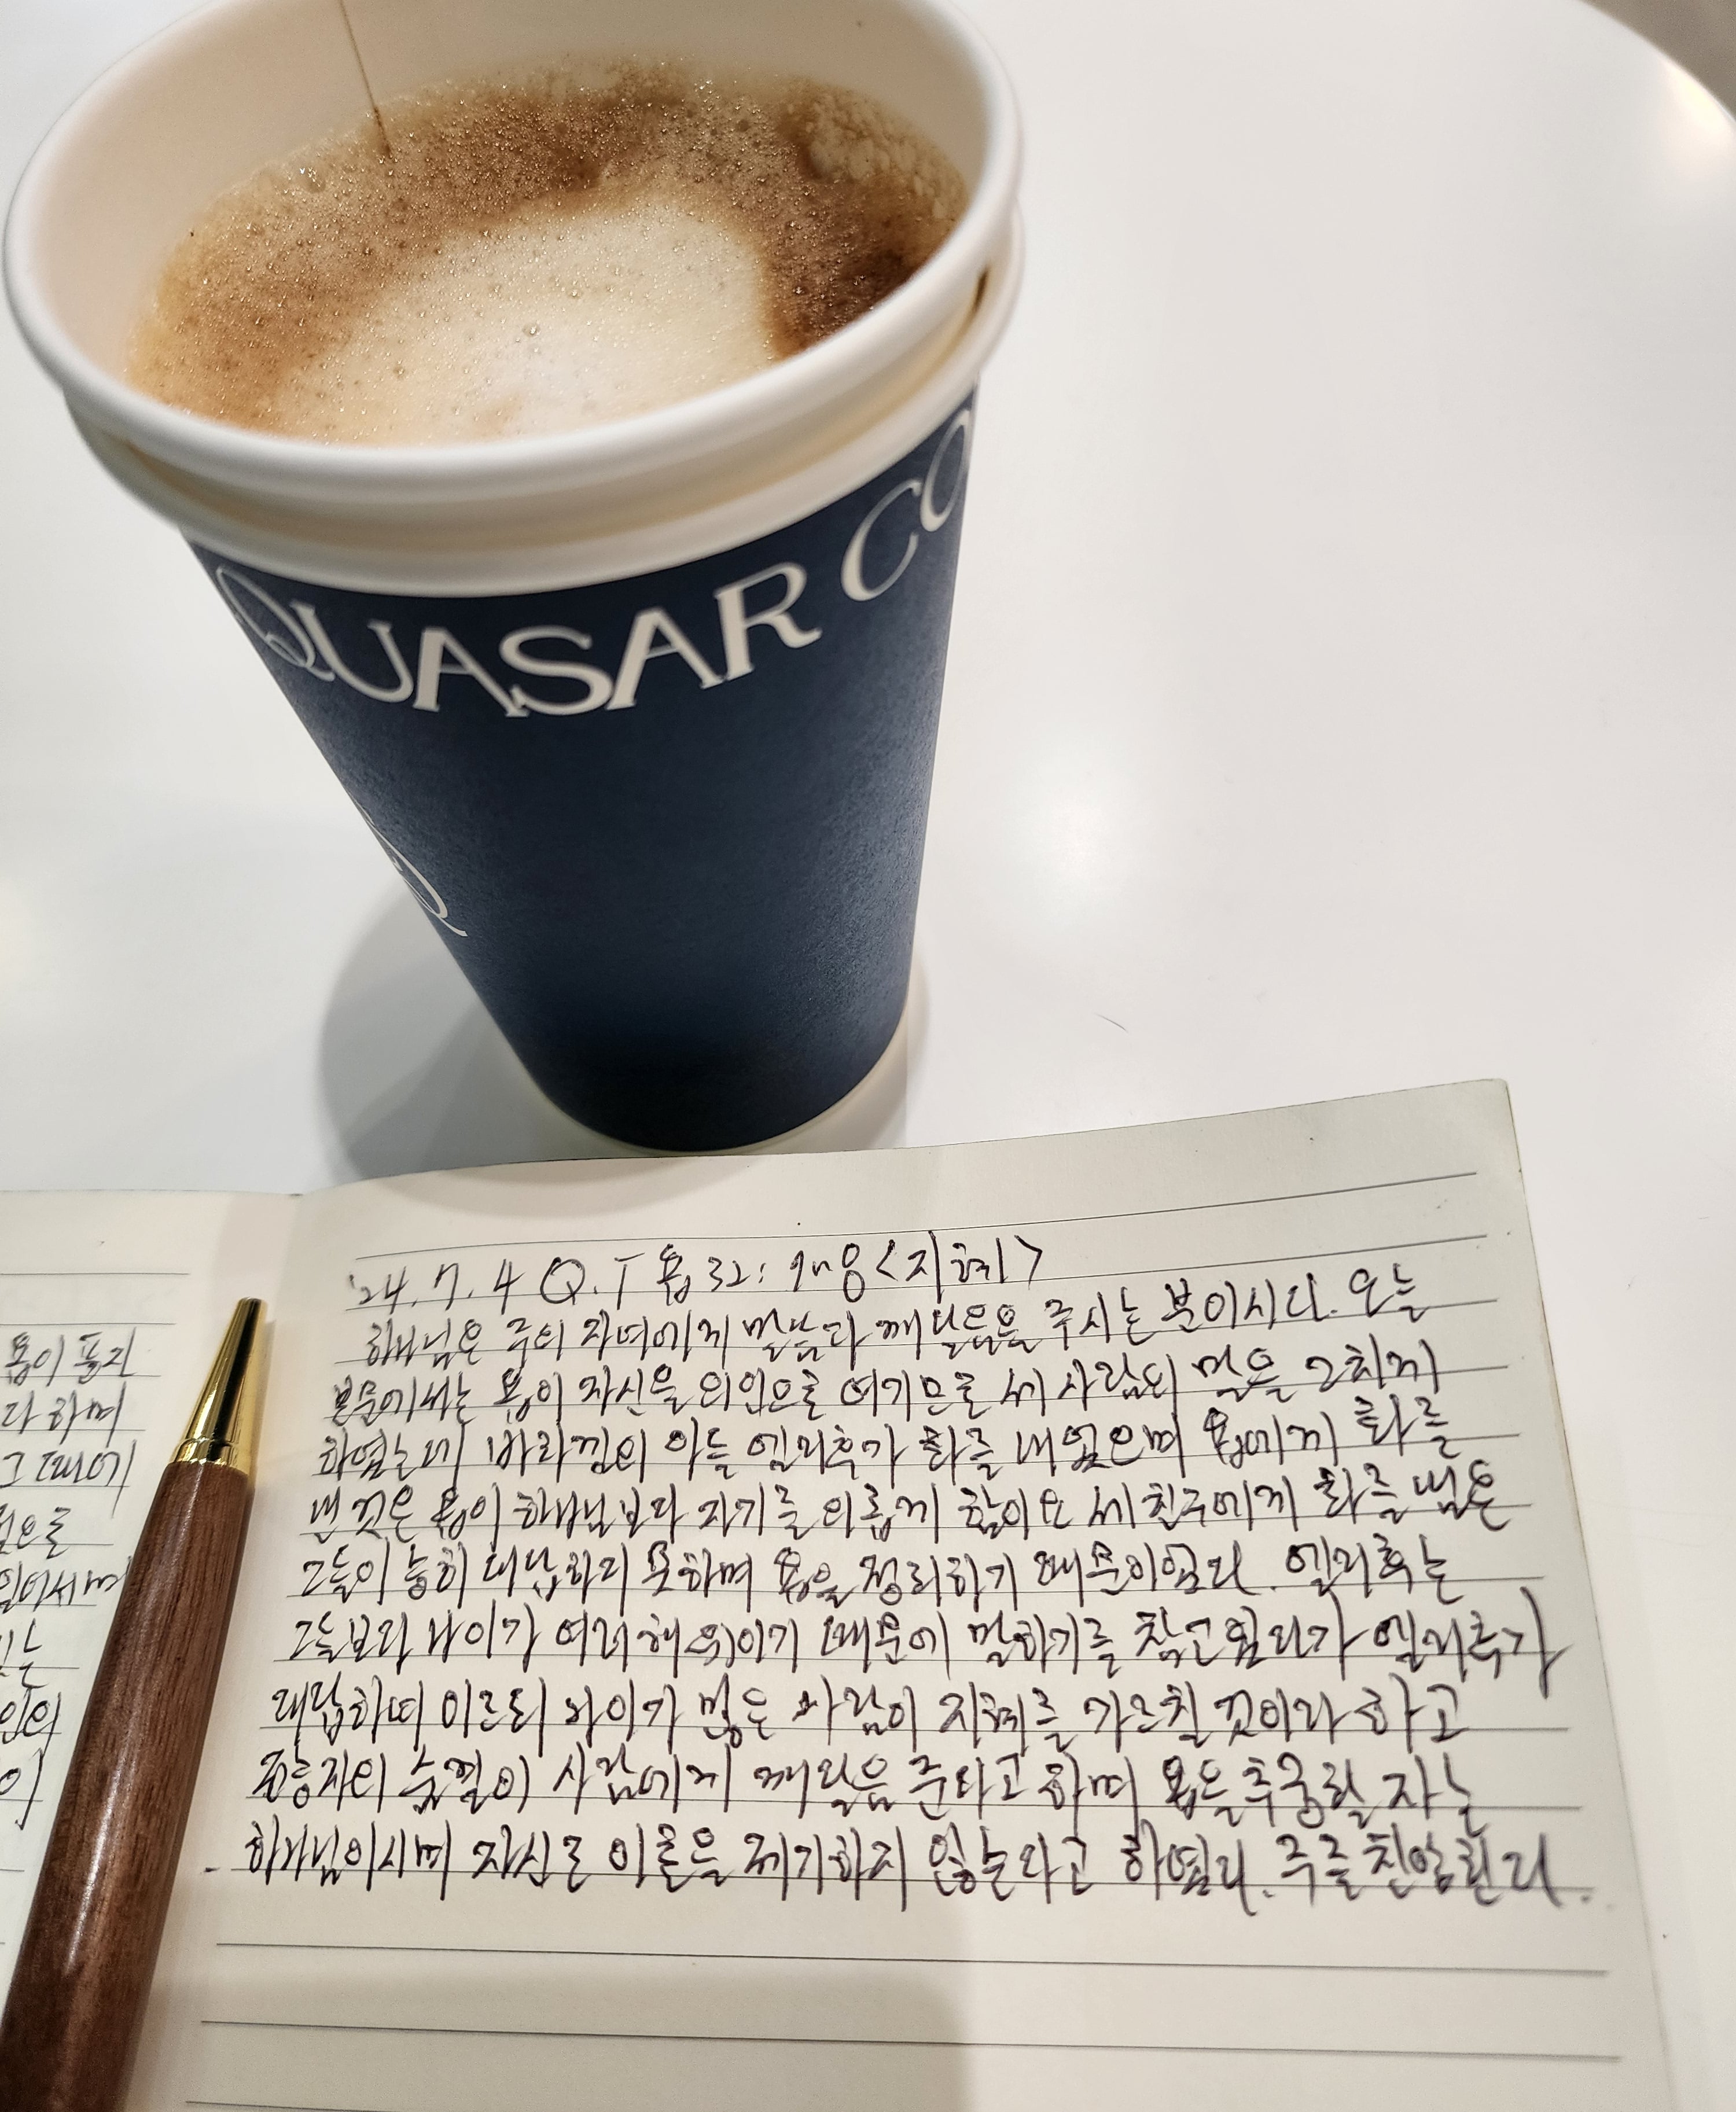 QUASAR CO
Q
'24. 7. 4 Q.T 욥 32: 내용 <지혜>
하나님은 주의 자녀에게 말씀과 깨달음을 주시는 분이시다. 오늘
본문에서는 욥이 자신을 의인으로 여기므로 세 사람의 말을 그치게
하였는데 바라겔의 아들 엘리후가 화를 내었으며 욥에게 화를
낸 것은 욥이 하나님보다 자기를 의롭게 함이요 세 친구에게 화를 냄은
그들이 능히 대답하지 못하며 욥을 정죄하기 때문이었다. 엘리후는
그들보다 나이가 여러 해 위이기 때문에 말하기를 참고 있다가 엘리후가
대답하며 이르되 나이가 많은 사람이 지혜를 가르칠 것이라 하고
전능자의 숨결이 사람에게 깨달음을 준다고 하며 욥을 추궁할 자는
하나님이시며 자신은 이론을 제기하지 않는다고 하였다. 주를 찬양한다.
욥이 풀지
라 하며
그 때에
으로
있어서며
는
인의
이